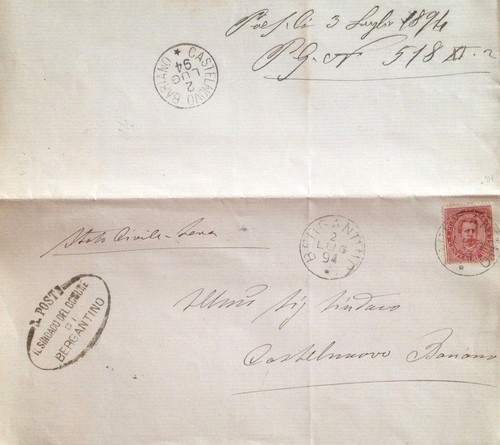 3 Luglio 1894
P.G. N 518 XI.2
CASTELNOVO BARIANO
2
LUG
94
Stato Civile - Leva
BERGANTINO
2
LUG
94
R. POSTE
IL SINDACO DEL COMUNE
DI
BERGANTINO
Sig Sindaco
Castelnuovo Bariano